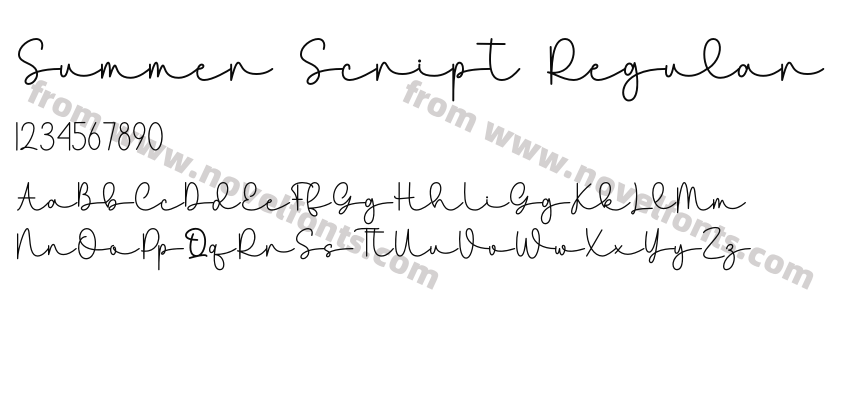 Summer Script Regular
1234567890
AaBbCcDdEeFfGgHhIiGgKkLlMm
NnOoPpQqRrSsTtUuVvWwXxYyZz
from www.novelfonts.com
from www.novelfonts.com